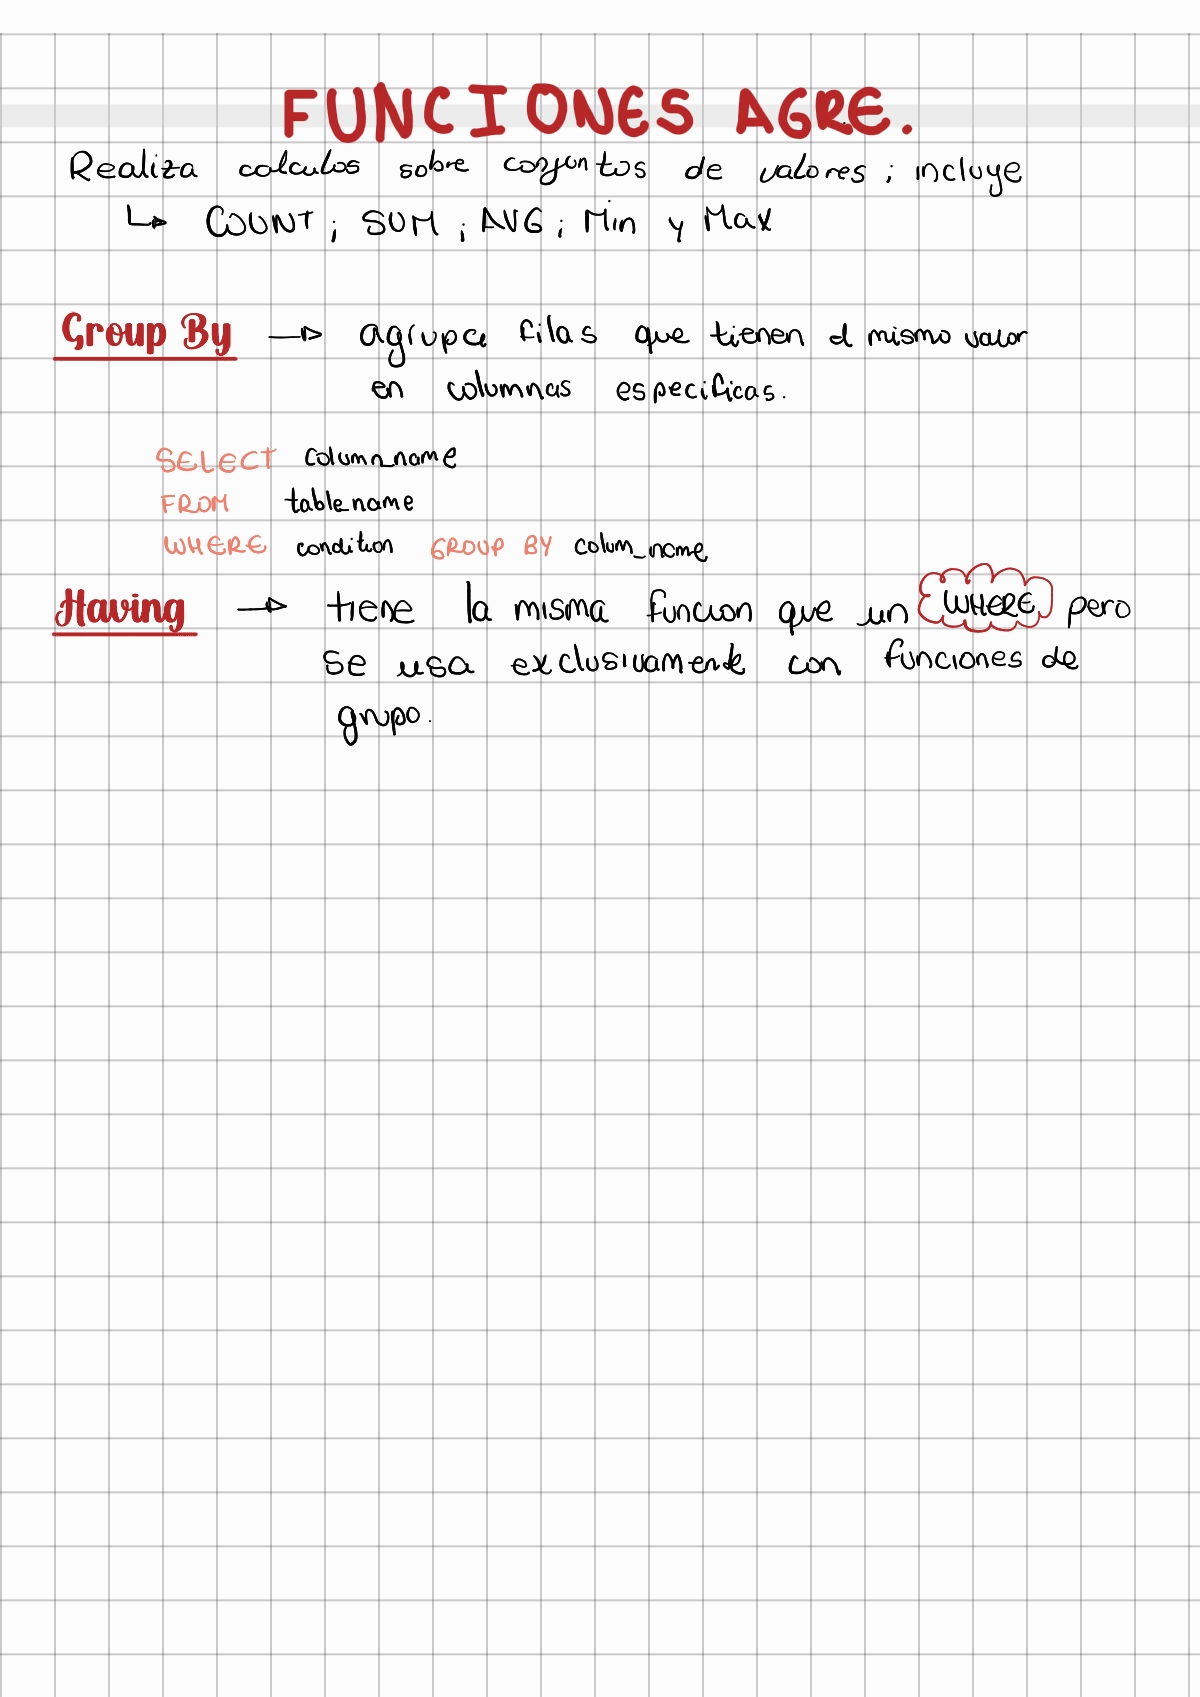 FUNCIONES AGRE.
Realiza calculos sobre conjuntos de valores ; incluye
↳ COUNT ; SUM ; AVG ; Min y Max
Group By → agrupa filas que tienen el mismo valor
en columnas especificas.
SELECT column_name
FROM table_name
WHERE condition GROUP BY colum_name
Having → tiene la misma funcion que un WHERE pero
se usa exclusivamente con funciones de
grupo.